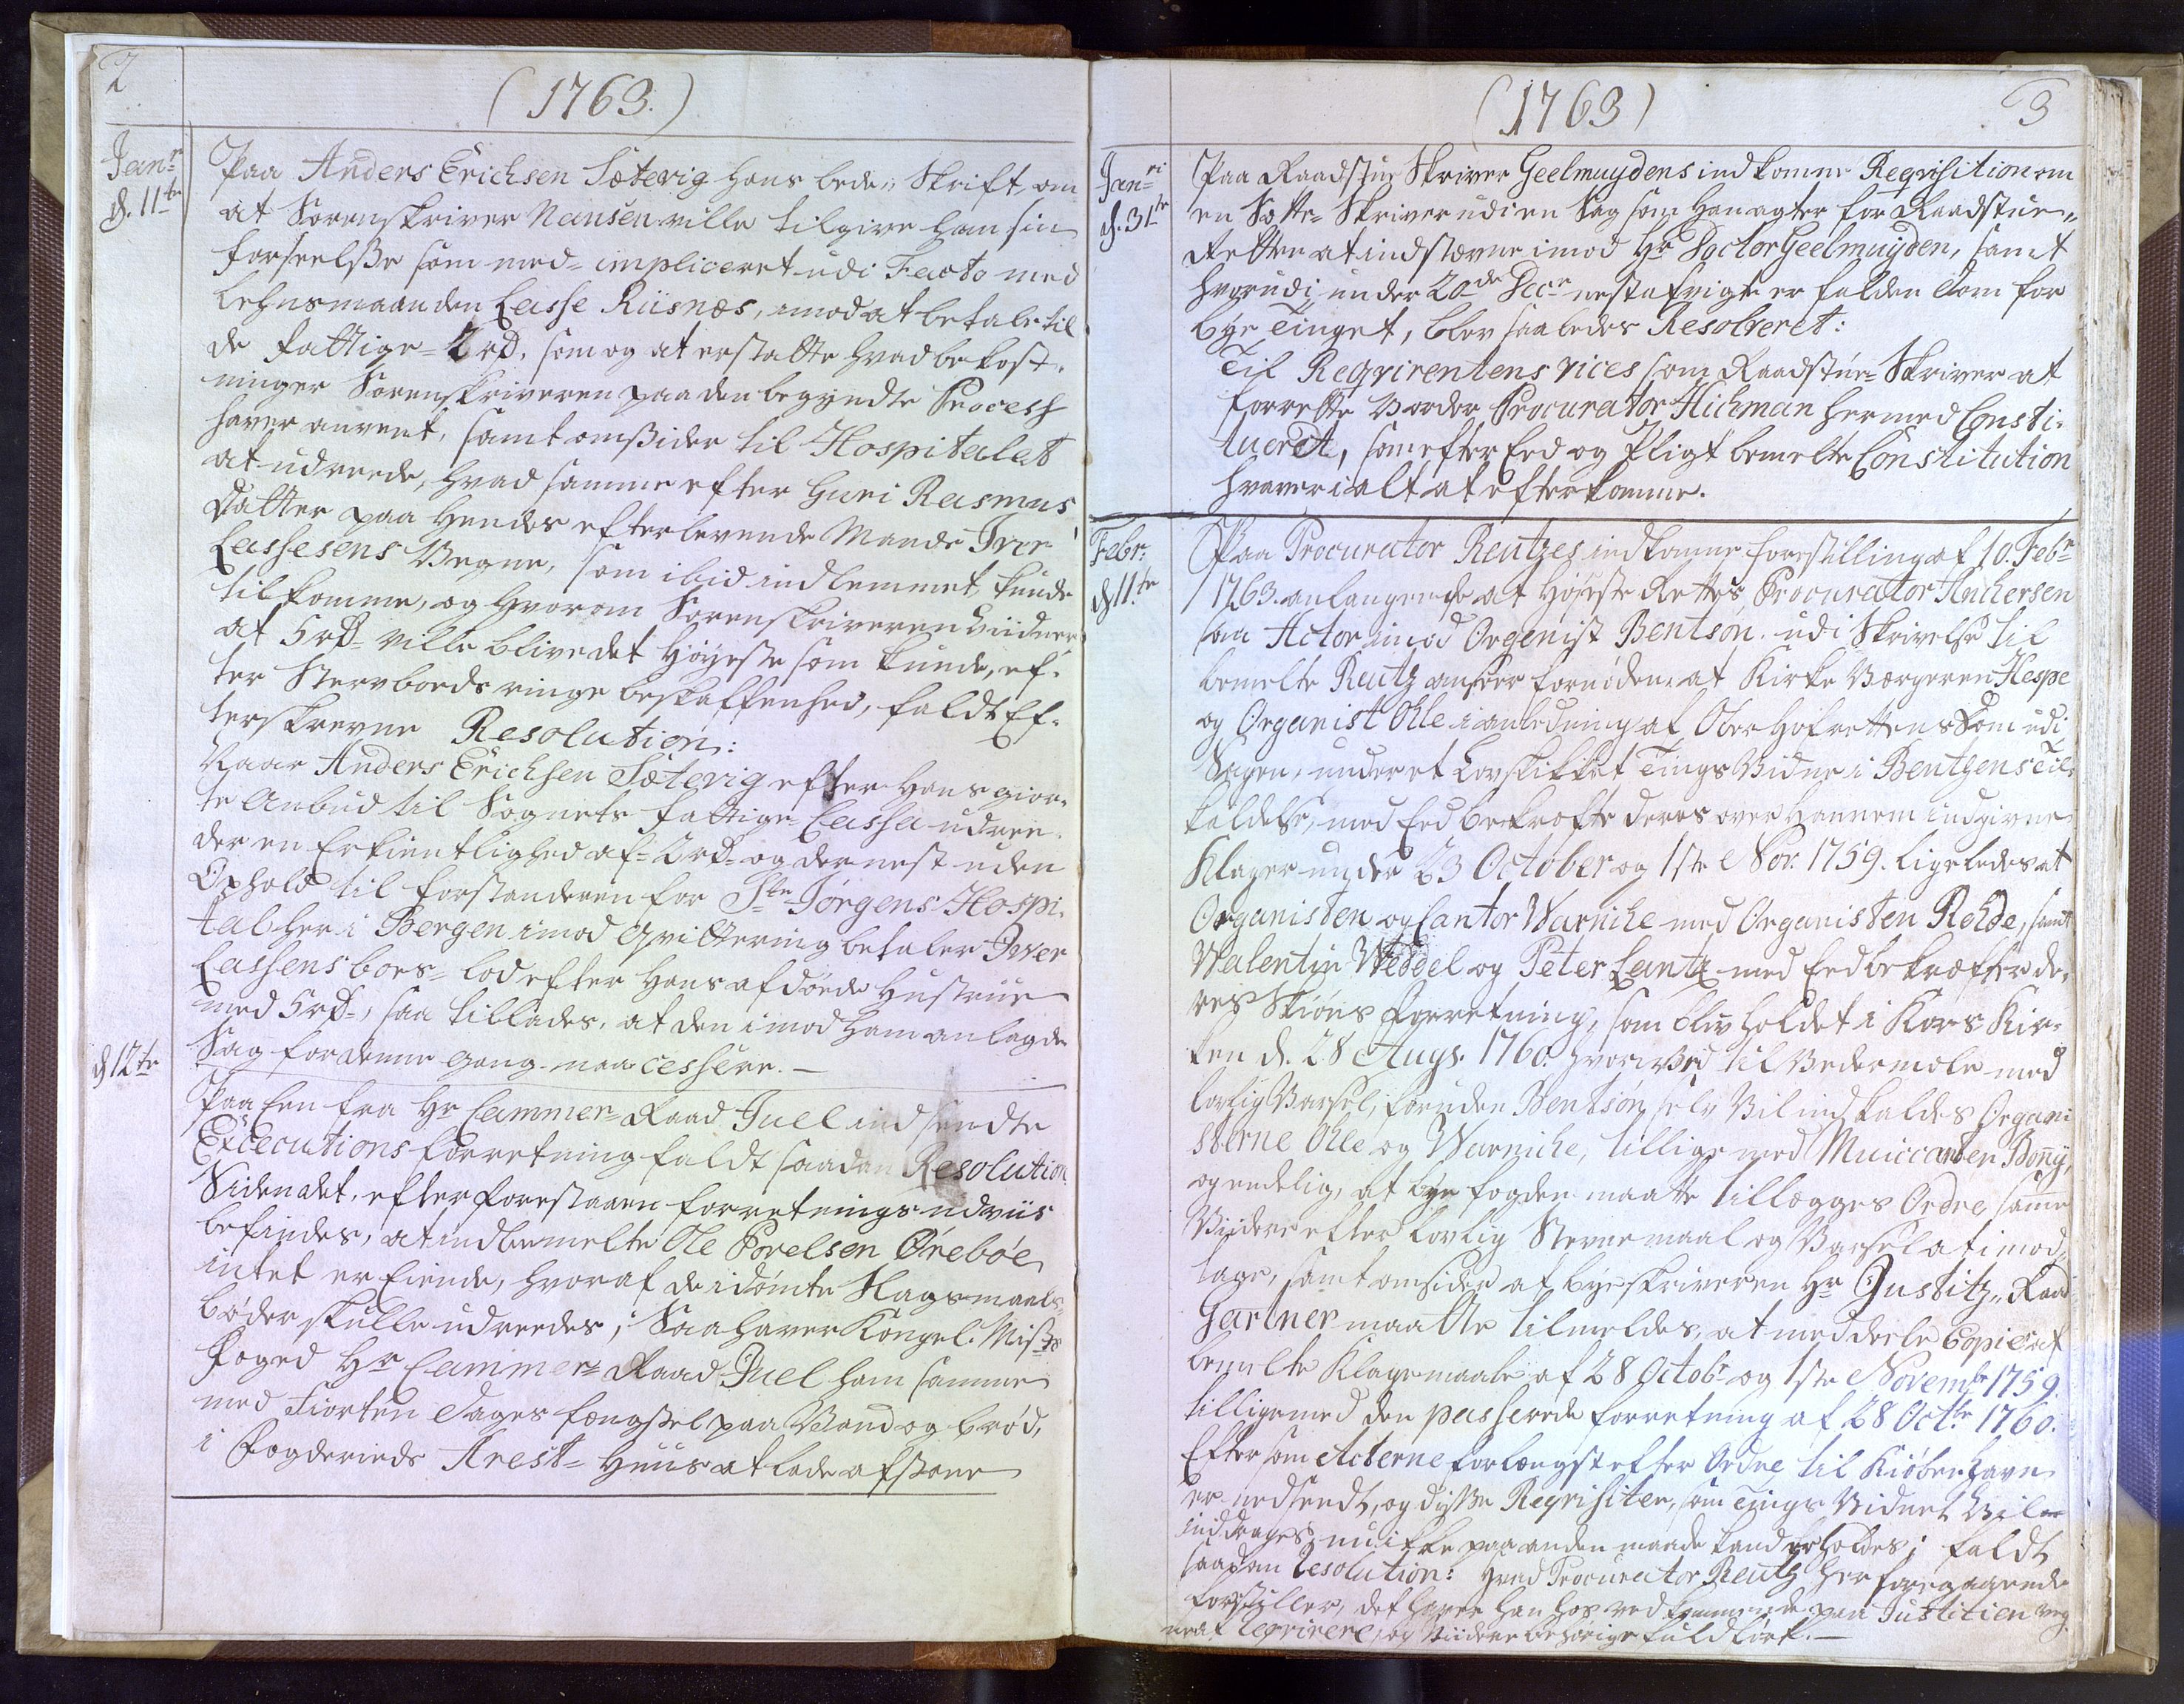 2
(1763.)
Janr
d. 11te
Paa Anders Erichsen Sætevig hans bede„ Skrift, om
at Sorenskriver Nansen ville tilgive ham sin
forseelsße som med= impliceret udi Facto med
Lehnsmanden Lasse Riisnæs, imod at betale til
de fattige= 2 rd, som og at erstatte hvad bekost=
ninger Sorenskriveren paa den begyndte Process
haver anvent, samt omsider til Hospitalet
at udreede, hvad samme efter Guri Rasmus
datter paa hendes efterlevende Mands Iver
Lassesens Vegne, som ibid indlemmet kunde
tilkomme, og hvorom Sorenskriveren Viidner
at 5 rd= ville blive det Høyeste som kunde, ef=
ter Stervboeds ringe beskaffenhed, faldt Ef=
terskrevne Resolution:
Naar Anders Erichsen Sætevig efter hans gior=
te Anbud til Sognets fattige= Cassa udree=
der en Erkientlighed af 2 rd= og dernest uden
Ophold til forstanderen for Ste Jørgens Hospi=
tal her i Bergen imod Qvittering betaler Iver
Lassens boes= lod efter hans afdøde Hustrue
med 5 rd=, saa tillades, at den imod ham anlagde
Sag for denne gang maa cessere.—
d 12te
Paa Een fra Hr Cammer= Raad Juel indsendte
Executions forretning faldt saadan Resolution
Siden det, efter forestaaende forretnings udviis
befindes, at indbemelte Ole Povelsen Ørebøe
intet er Eiende, hvoraf de idømte Slagsmaals=
bøder skulle udreedes; Saa haver Kongel. Mists
foged Hr Cammer= Raad Juel ham samme
med Fiorten Dages fængsel paa Vand og brød,
i Fogderieds Arest= Huus at lade afsone
(1763)
3
Janri
d. 31te
Paa Raadstue Skriver Geelmuydens indkomne Reqvisition om
en Sætte= Skriver udi en Sag som han agter for Raadstue„
Retten at indstævne imod Hr Doctor Geelmuyden, samt
hvorudi under 20de Decr nestafvigte er falden Dom for
bye Tinget, blev saaledes Resolveret:
Til Reqvirentens vices som Raadstue= Skriver at
forrette vorder Procurator Hichman hermed Consti=
tueret, som efter Eed og Pligt bemelte Constitution
haver i alt at efterkomme.
Febr:
d 11te
Paa Procurator Reutzes indkomne forestilling af 10. Febr
1763. anlangende at Høyeste Rettes Procurator Anchersen
som Actor imod Organist Bentson udi Skrivelse til
bemelte Reutz anseer fornøden at Kirke Værgeren Hespe
og Organist Ohle i anledning af Over Hofrettens Dom udi
Sagen, under et Lovskikket Tings Vidne i Bentzens Til=
kaldelse, med Eed bekræfte deres over Hannem indgivne
Klager under 23 October og 1ste Nov. 1759. ligeledes at
Organisten og Cantor Warniche med Organisten Rohde, samt
Valentin Weddel og Peter Lantz med Eed bekræfter de=
res Skiøns forretning, som blev holdet i Kors Kir=
ken d. 28 Augs. 1760. hvorved til Vedermæle med
lovlig Varsel, foruden Bentson selv Vil indkaldes Organi
sterne Ohle og Warniche, tillige med Musicanten Bonÿ,
og endelig, at bye fogden maatte tillægges Ordre, samme
Vidner efter lovlig Stevnemaal og Varsel at imod„
tage, samt omsider at byeskriveren Hr Justitz„ Raad
Gartner maatte tilmeldes, at meddeele Copie af
bemelte Klagemaale af 28 Octobr og 1ste Novembr 1759.
tilligemed den passerede forretning af 28 Octbr 1760.
Eftersom Acterne forlængst efter Ordre til Kiøbenhavn
er nedsendt, og disse Reqvisiter, som Tings Vidnet Vil
inddrages, nu ikke paa anden maade kand erholdes; faldt
saadan Resolution: Hvad Procurator Reutz her foregaaende
forestiller, det haver han hos vedkommende paa Justitien veg
ne at reqvirere, og Viidere behørige fuldført.—